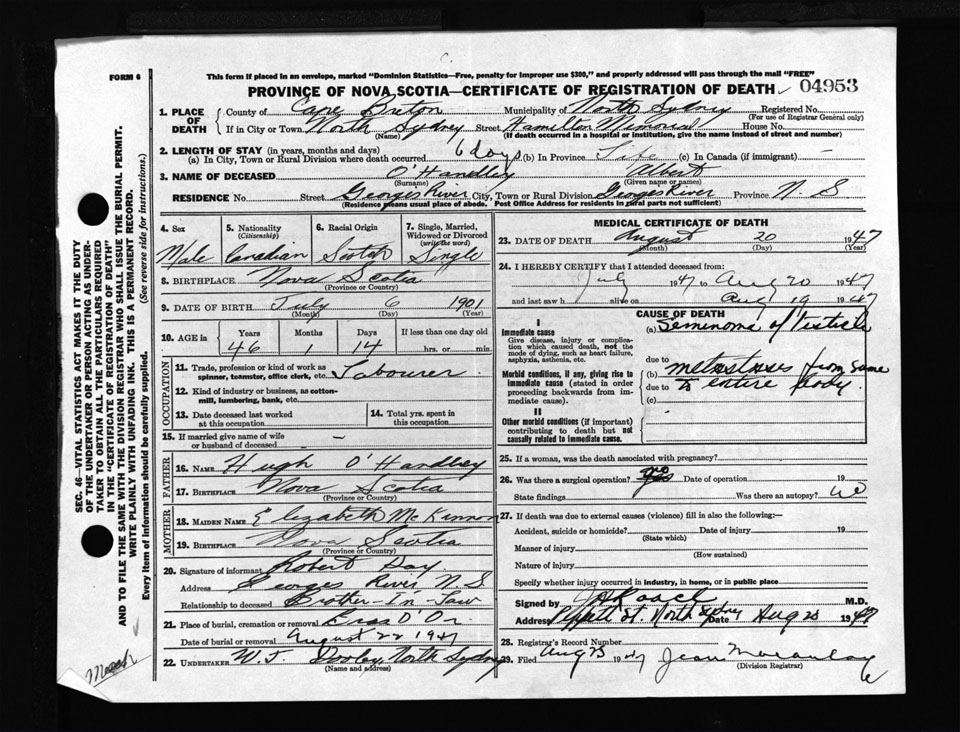 FORM 6
This form if placed in an envelope, marked "Dominion Statistics—Free, penalty for improper use $300," and properly addressed will pass through the mail "FREE"
PROVINCE OF NOVA SCOTIA—CERTIFICATE OF REGISTRATION OF DEATH 04953
1. PLACE OF DEATH County of Cape Breton Municipality of North Sydney Registered No.
(For use of Registrar General only)
If in City or Town North Sydney Street Hamilton Memorial House No.
(Name) (If death occurred in a hospital or institution, give the name instead of street and number)
2. LENGTH OF STAY (in years, months and days)
(a) In City, Town or Rural Division where death occurred 6 days (b) In Province Life (c) In Canada (if immigrant) -
3. NAME OF DECEASED O'Handley Albert
(Surname) (Given name or names)
RESIDENCE No. Street Georges River City, Town or Rural Division Georges River Province N. S
(Residence means usual place of abode. Post Office Address for residents in rural parts not sufficient)
4. Sex 5. Nationality (Citizenship) 6. Racial Origin 7. Single, Married, Widowed or Divorced (write the word)
Male Canadian Scotch Single
8. BIRTHPLACE Nova Scotia
(Province or Country)
9. DATE OF BIRTH July 6 1901
(Month) (Day) (Year)
10. AGE in Years Months Days If less than one day old
46 1 14 hrs. or min.
OCCUPATION
11. Trade, profession or kind of work as spinner, teamster, office clerk, etc. Labourer
12. Kind of industry or business, as cotton-mill, lumbering, bank, etc.
13. Date deceased last worked at this occupation 14. Total yrs. spent in this occupation
15. If married give name of wife or husband of deceased -
FATHER
16. NAME Hugh O'Handley
17. BIRTHPLACE Nova Scotia
(Province or Country)
MOTHER
18. MAIDEN NAME Elizabeth McKinnon
19. BIRTHPLACE Nova Scotia
(Province or Country)
20. Signature of informant Robert Day
Address Georges River, N. S.
Relationship to deceased Brother-In-Law
21. Place of burial, cremation or removal
Date of burial or removal August 22 1947
22. UNDERTAKER W. J. Dooley, North Sydney
(Name and address)
MEDICAL CERTIFICATE OF DEATH
23. DATE OF DEATH August 20 1947
(Month) (Day) (Year)
24. I HEREBY CERTIFY that I attended deceased from:
July 1947 to Aug 20 1947
and last saw h alive on Aug 19 1947
CAUSE OF DEATH
I
Immediate cause (a) Seminoma of Testicle
Give disease, injury or complication which caused death, not the mode of dying, such as heart failure, asphyxia, asthenia, etc.
due to
Morbid conditions, if any, giving rise to immediate cause (stated in order proceeding backwards from immediate cause).
(b) metastases from same
due to to entire body.
(c)
II
Other morbid conditions (if important) contributing to death but not causally related to immediate cause.
25. If a woman, was the death associated with pregnancy?
26. Was there a surgical operation? no Date of operation 19
State findings Was there an autopsy? no
27. If death was due to external causes (violence) fill in also the following:—
Accident, suicide or homicide? Date of injury 19
(State which)
Manner of injury
(How sustained)
Nature of injury
Specify whether injury occurred in industry, in home, or in public place
Signed by M.D.
Address St. North Sydney Date Aug 20 1947
28. Registrar's Record Number
29. Filed Aug 23 1947 Jean Macaulay
(Division Registrar)
SEC. 46—VITAL STATISTICS ACT MAKES IT THE DUTY
OF THE UNDERTAKER OR PERSON ACTING AS UNDER-
TAKER TO OBTAIN ALL THE PARTICULARS REQUIRED
IN THE "CERTIFICATE OF REGISTRATION OF DEATH"
AND TO FILE THE SAME WITH THE DIVISION REGISTRAR WHO SHALL ISSUE THE BURIAL PERMIT.
WRITE PLAINLY WITH UNFADING INK. THIS IS A PERMANENT RECORD.
Every item of information should be carefully supplied. (See reverse side for instructions.)